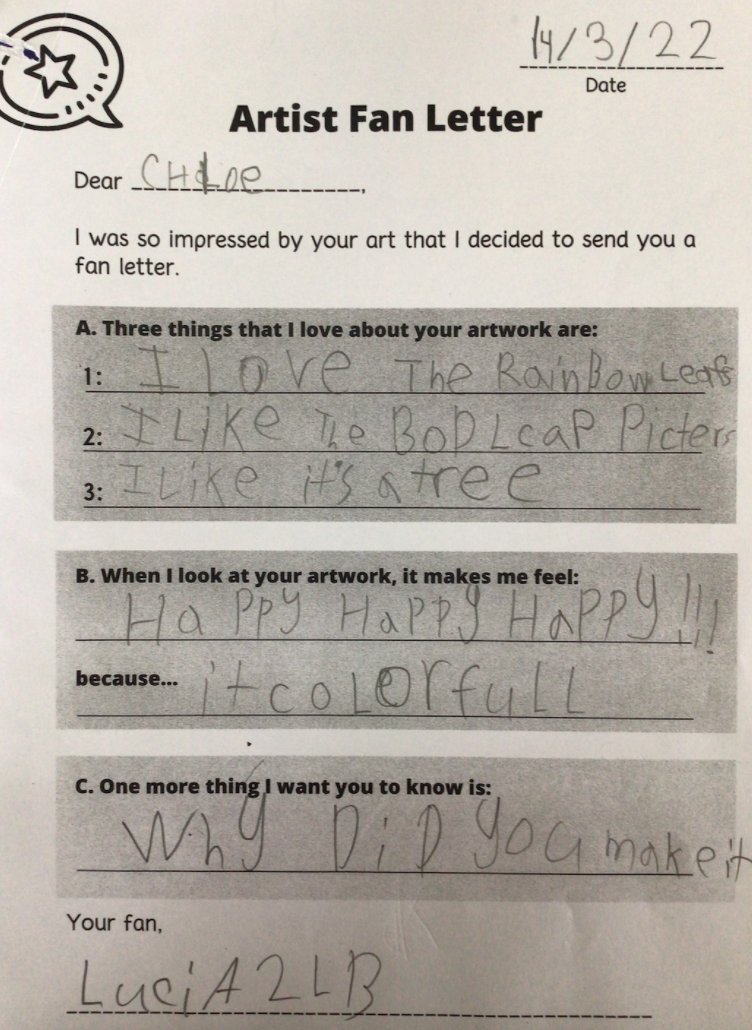 14/3/22
Date
Artist Fan Letter
Dear CHLOe,
I was so impressed by your art that I decided to send you a
fan letter.
A. Three things that I love about your artwork are:
1: I LOVe The RainBow Leafs
2: I LiKe The BoD LeaP Picters
3: I Like it's a tree
B. When I look at your artwork, it makes me feel:
Ha PPY HaPPY HaPPY!!!
because... it coLorfuLL
C. One more thing I want you to know is:
Why DiD you make it
Your fan,
LuciA 2LB